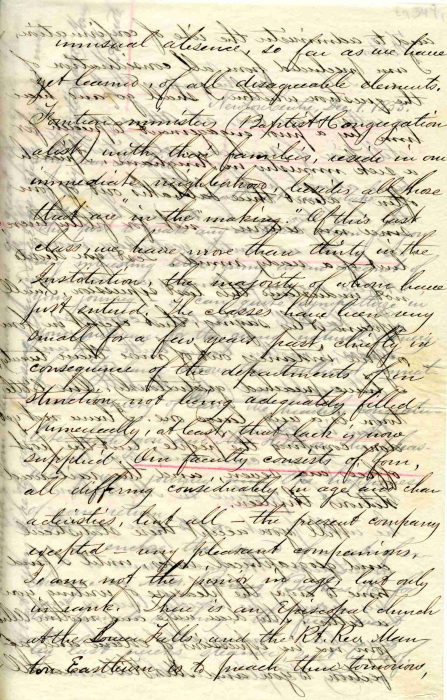 unusual absence, so far as we have
yet learned, of all disagreeable elements.
Fourteen ministers (Baptist & Congregation
alist) with their families, reside in our
immediate neighborhood, besides all those
that are "in the making." Of this last
class, we have more than thirty in the
Institution, the majority of whom have
just entered. The classes have been very
small for a few years past, chiefly in
consequence of the departments of in
struction not being adequately filled.
Numerically, at least, that lack is now
supplied. Our faculty consist of four,
all differing considerably in age and char
acteristics, but all — the present company
excepted — very pleasant companions.
I am not the junior in age, but only
in rank. There is an Episcopal church
at the Lower Falls, and the Rt. Rev. Man
ton Eastburn is to preach there tomorrow,